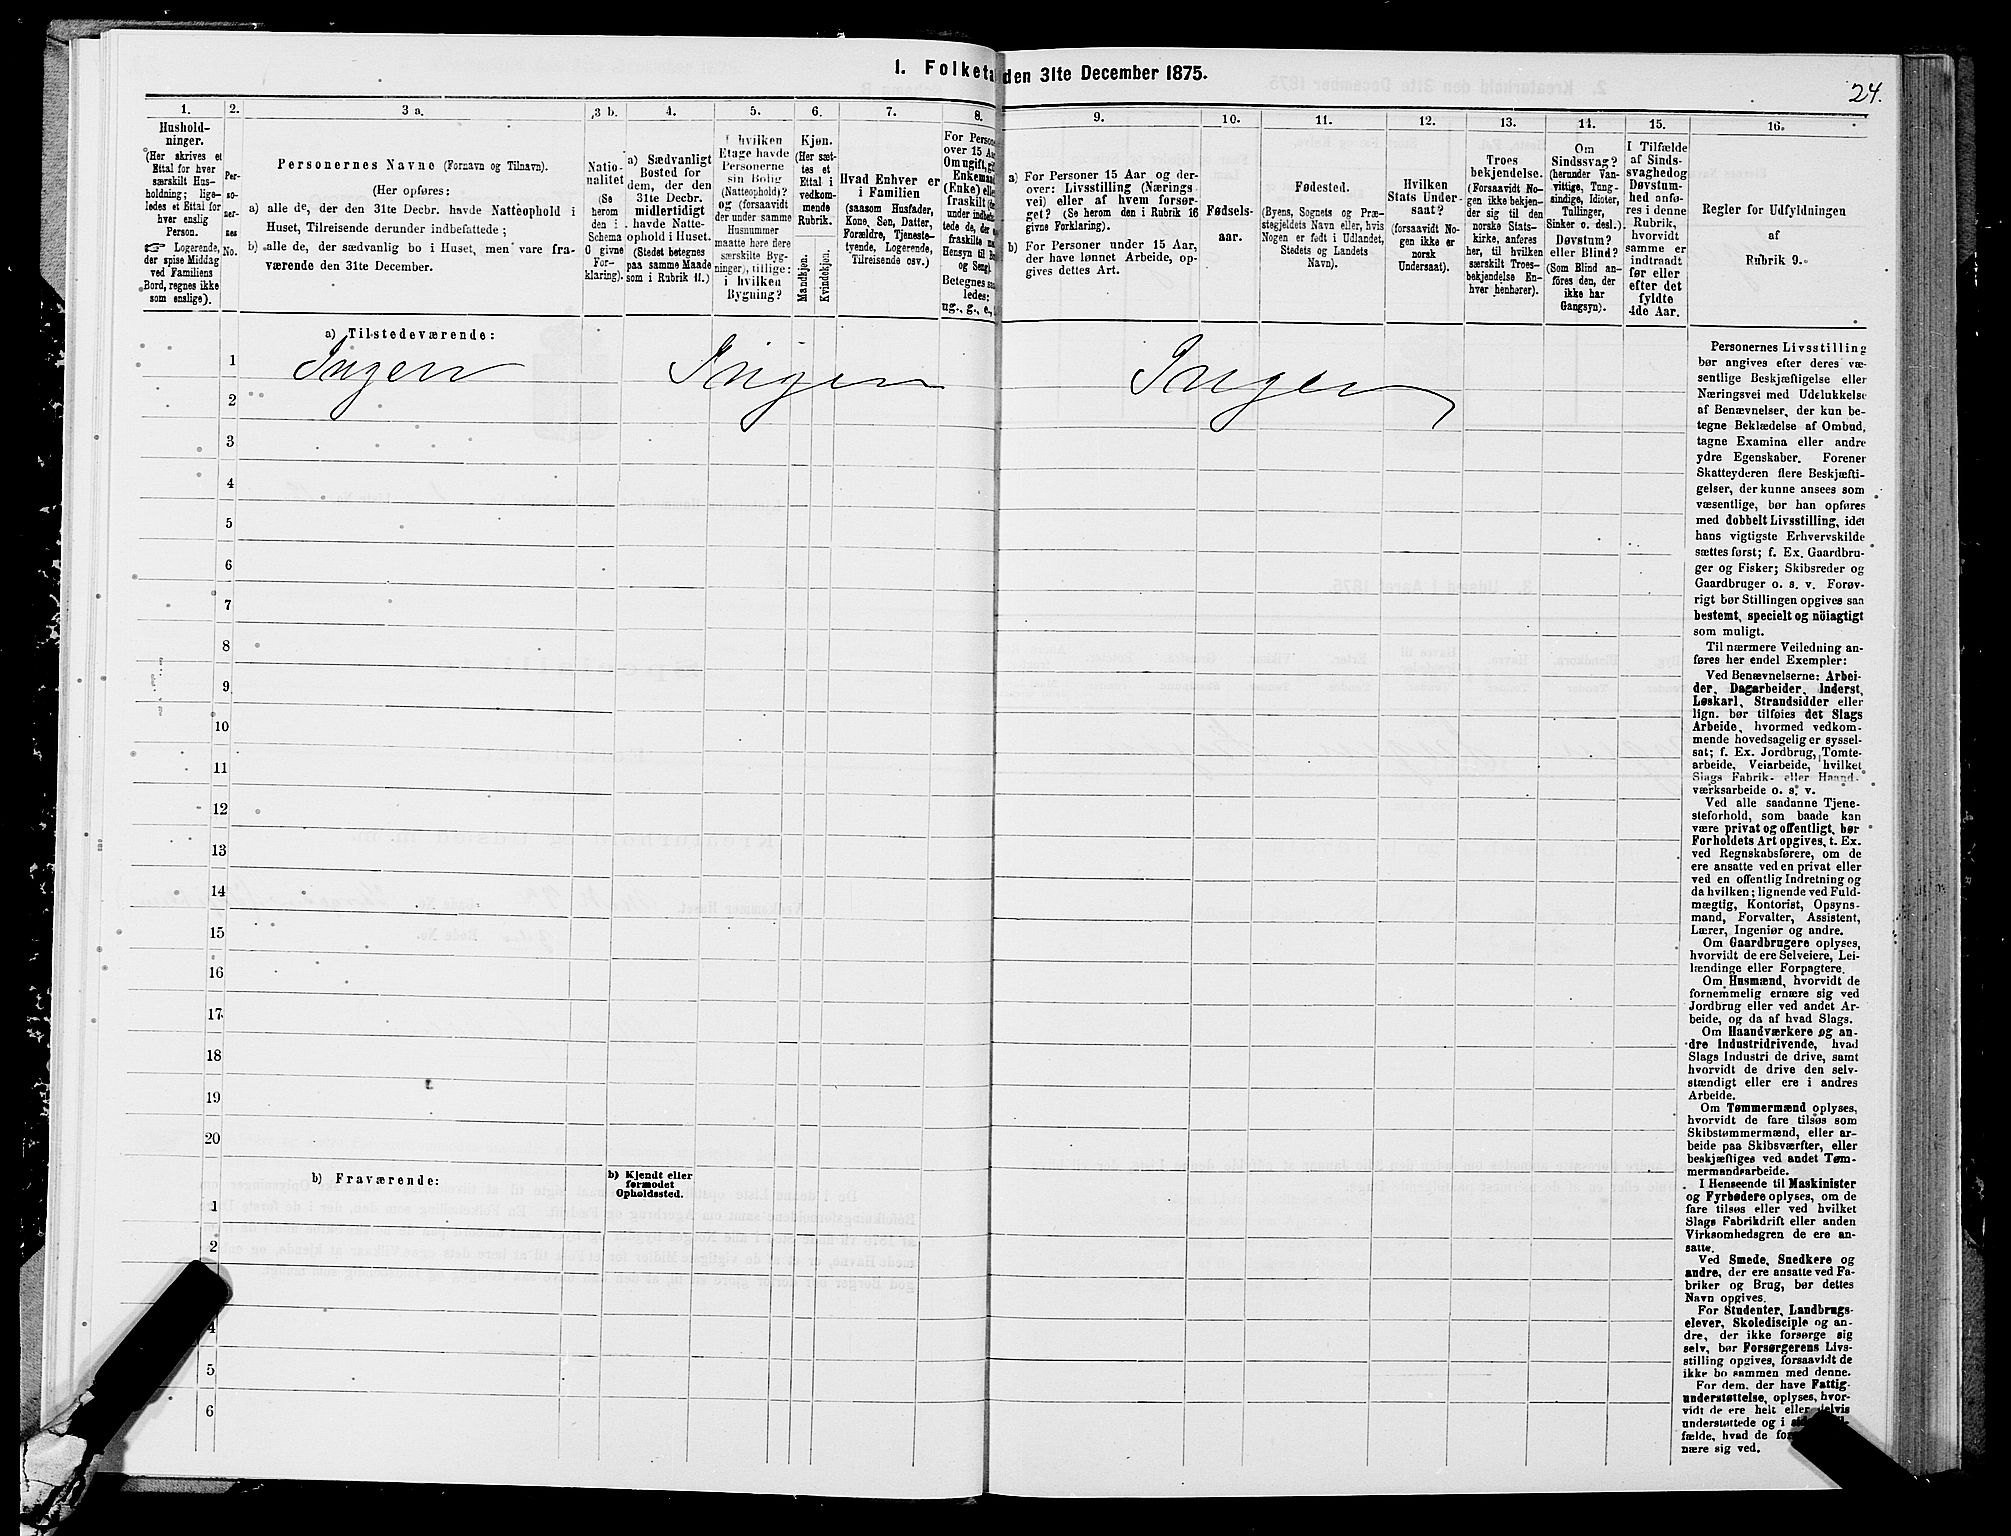 1. Folketa den 31te December 1875.
24.
1.
Hushold-
ninger.
(Her skrives et
Ettal for hver
særskilt Hus-
holdning; lige-
ledes et Ettal for
hver enslig
Person.
☞ Logerende,
der spise Middag
ved Familiens
Bord, regnes ikke
som enslige).
2.
Per-
so-
ner-
nes
No.
3 a.
Personernes Navne (Fornavn og Tilnavn).
(Her opføres:
a) alle de, der den 31te Decbr. havde Natteophold i
Huset, Tilreisende derunder indbefattede;
b) alle de, der sædvanlig bo i Huset, men vare fra-
værende den 31te December.
3 b.
Natio-
nalitet
(Se
herom
den i
Schema
O givne
For-
klaring).
4.
a) Sædvanligt
Bosted for
dem, der den
31te Decbr.
midlertidigt
havde Natte-
ophold i Huset.
(Stedet betegnes
paa samme Maade
som i Rubrik 11.)
5.
I hvilken
Etage havde
Personerne
sin Bolig
(Natteophold)?
og (forsaavidt
der under samme
Husnummer
maatte høre flere
særskilte Byg-
ninger), tillige:
i hvilken
Bygning?
6.
Kjøn.
(Her sæt-
tes et
Ettal i
vedkom-
mende
Rubrik.
Mandkjøn.
Kvindekjøn.
7.
Hvad Enhver er
i Familien
(saasom Husfader,
Kone, Søn, Datter,
Forældre, Tjeneste-
tyende, Logerende,
Tilreisende osv.)
8.
For Persone
over 15 Aa
Om ugift, gi
Enkemand
(Enke) elle
fraskilt
under indbe
tede de, der
fraskilte
Hensyn til B
og Seng).
Betegnes saa
ledes:
ug., g., e.,
9.
a) For Personer 15 Aar og der-
over: Livsstilling (Nærings
vei) eller af hvem forsør-
get? (Se herom den i Rubrik 16
givne Forklaring).
b) For Personer under 15 Aar,
der have lønnet Arbeide, op-
gives dettes Art.
10.
Fødsels-
aar.
11.
Fødested.
(Byens, Sognets og Præ-
stegjeldets Navn eller, hvis
Nogen er født i Udlandet,
Stedets og Landets
Navn).
12.
Hvilken
Stats Under-
saat?
(forsaavidt No-
gen ikke er
norsk
Undersaat).
13.
Troes
bekjendelse.
(Forsaavidt No-
gen ikke bekjen-
der sig til den
norske Stats-
kirke, anføres
her, til hvilken
særskilt Troes-
bekjendelse En-
hver henhører).
14.
Om
Sindssvag?
(herunder Van-
vittige, Tung-
sindige, Idioter,
Tullinger,
Sinker o. desl.)
Døvstum?
eller Blind?
(Som Blind an-
føres den, der
ikke har
Gangsyn).
15.
I Tilfælde
af Sinds-
svaghed og
Døvstum-
hed anfø-
res i denne
Rubrik,
hvorvidt
samme er
indtraadt
før eller
efter det
fyldte
4de Aar.
16.
Regler for Udfyldningen
af
Rubrik 9.
a) Tilstedeværende:
Ingen Ingen Ingen
1
2
3
4
5
6
7
8
9
10
11
12
13
14
15
16
17
18
19
20
b) Fraværende:
b) Kjendt eller
formodet
Opholdssted.
1
2
4
5
6
Personernes Livsstilling
bør angives efter deres væ-
sentlige Beskjæftigelse eller
Næringsvei med Udelukkelse
af Benævnelser, der kun be-
tegne Beklædelse af Ombud,
tagne Examina eller andre
ydre Egenskaber. Forener
Skatteyderen flere Beskjæfti-
gelser, der kunne ansees som
væsentlige, bør han opføres
med dobbelt Livsstilling, idet
hans vigtigste Erhvervskilde
sættes først; f. Ex. Gaardbru-
ger og Fisker; Skibsreder og
Gaardbruger o. s. v. Forøv-
rigt bør Stillingen opgives saa
bestemt, specielt og nöiagtigt
som muligt.
Til nærmere Veiledning an-
føres her endel Exempler:
Ved Benævnelserne: Arbei-
der, Dagarbeider, Inderst,
Løskarl, Strandsidder eller
lign. bør tilføies det Slags
Arbeide, hvormed vedkom-
mende hovedsagelig er syssel-
sat; f. Ex. Jordbrug, Tomte-
arbeide, Veiarbeide, hvilket
Slags Fabrik- eller Haand-
værksarbeide o. s. v.
Ved alle saadanne Tjene-
steforhold, som baade kan
være privat og offentligt, bør
Forholdets Art opgives, t. Ex.
ved Regnskabsførere, om de
ere ansatte ved en privat eller
ved en offentlig Indretning og
da hvilken; lignende ved Fuld-
mægtig, Kontorist, Opsyns-
mand, Forvalter, Assistent,
Lærer, Ingeniør og andre.
Om Gaardbrugere oplyses,
hvorvidt de ere Selveiere, Lei-
lændinge eller Forpagtere.
Om Husmænd, hvorvidt de
fornemmelig ernære sig ved
Jordbrug eller ved andet Ar-
beide, og da af hvad Slags.
Om Haandværkere og an-
dre Industridrivende, hvad
Slags Industri de drive, samt
hvorvidt de drive den selv-
stændigt eller ere i andres
Arbeide.
Om Tømmermænd oplyses,
hvorvidt de fare tilsøs som
Skibstømmermænd, eller ar-
beide paa Skibsværfter, eller
beskjæftiges ved andet Tøm-
mermandsarbeide.
I Henseende til Maskinister
og Fyrbødere oplyses, om de
fare tilsøs eller ved hvilket
Slags Fabrikdrift eller anden
Virksomhedsgren de ere an-
satte.
Ved Smede, Snedkere og
andre, der ere ansatte ved Fa-
briker og Brug, bør dettes
Navn opgives.
For Studenter, Landbrugs-
elever, Skoledisciple og an-
dre, der ikke forsørge sig
selv, bør Forsørgerens Livs-
stilling opgives, forsaavidt de
ikke bo sammen med denne.
For dem, der have Fattig-
understøttelse, oplyses, hvor-
vidt de ere helt eller delvis
understøttede og i
fælde, hvad de
nære sig ved.